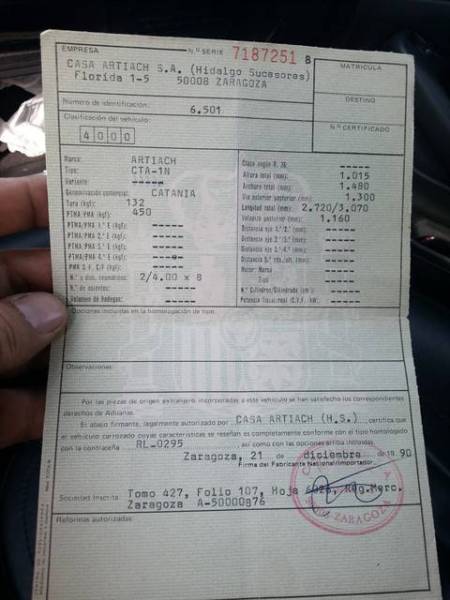 EMPRESA
Nº SERIE 7187251 8
CASA ARTIACH S.A. (Hidalgo Sucesores)
Florida 1-5 50008 ZARAGOZA
MATRICULA
DESTINO
Nº CERTIFICADO
Número de identificación: 6.501
Clasificación del vehículo:
4000
Marca: ARTIACH
Tipo: CTA-1N
Variante: -----
Denominación comercial: CATANIA
Tara (kgf): 132
PTMA/PMA (kgf): 450
PTMA/PMA 1.º E (kgf): -----
PTMA/PMA 2.º E (kgf): -----
PTMA/PMA 3.º E (kgf): -----
PTMA/PMA 4.º E (kgf):
N.º y dim. neumáticos: 2/4.00 x 8
N.º de asientos: -----
Volumen de Bodegas: -----
Altura total (mm): 1.015
Anchura total (mm): 1.480
Vía anterior/posterior (mm): 1.300
Longitud total (mm): 2.720/3.070
Voladizo posterior (mm): 1.160
Distancia eje 1.º 2.º (mm): -----
Distancia eje 2.º 3.º (mm): -----
Distancia eje 3.º 4.º (mm): -----
Motor: Marca -----
Tipo -----
N.º Cilindros/Cilindrada (cm³): -----
Potencia fiscal/real (C.V.F./kW): -----
Opciones incluidas en la homologación de tipo:
Observaciones:
Por las piezas de origen extranjero incorporadas a este vehículo se han satisfecho los correspondientes
derechos de Aduanas.
El abajo firmante, legalmente autorizado por CASA ARTIACH (H.S.) certifica que
el vehículo carrozado cuyas características se reseñan es completamente conforme con el tipo homologado
con la contraseña RL-0295, así como con las opciones arriba incluidas.
Zaragoza, 21 de diciembre de 19 90
Firma del Fabricante Nacional/Importador.
Sociedad Inscrita Tomo 427, Folio 107, Hoja Reg.Merc.
Zaragoza A-50000876
ZARAGOZA
Reformas autorizadas: